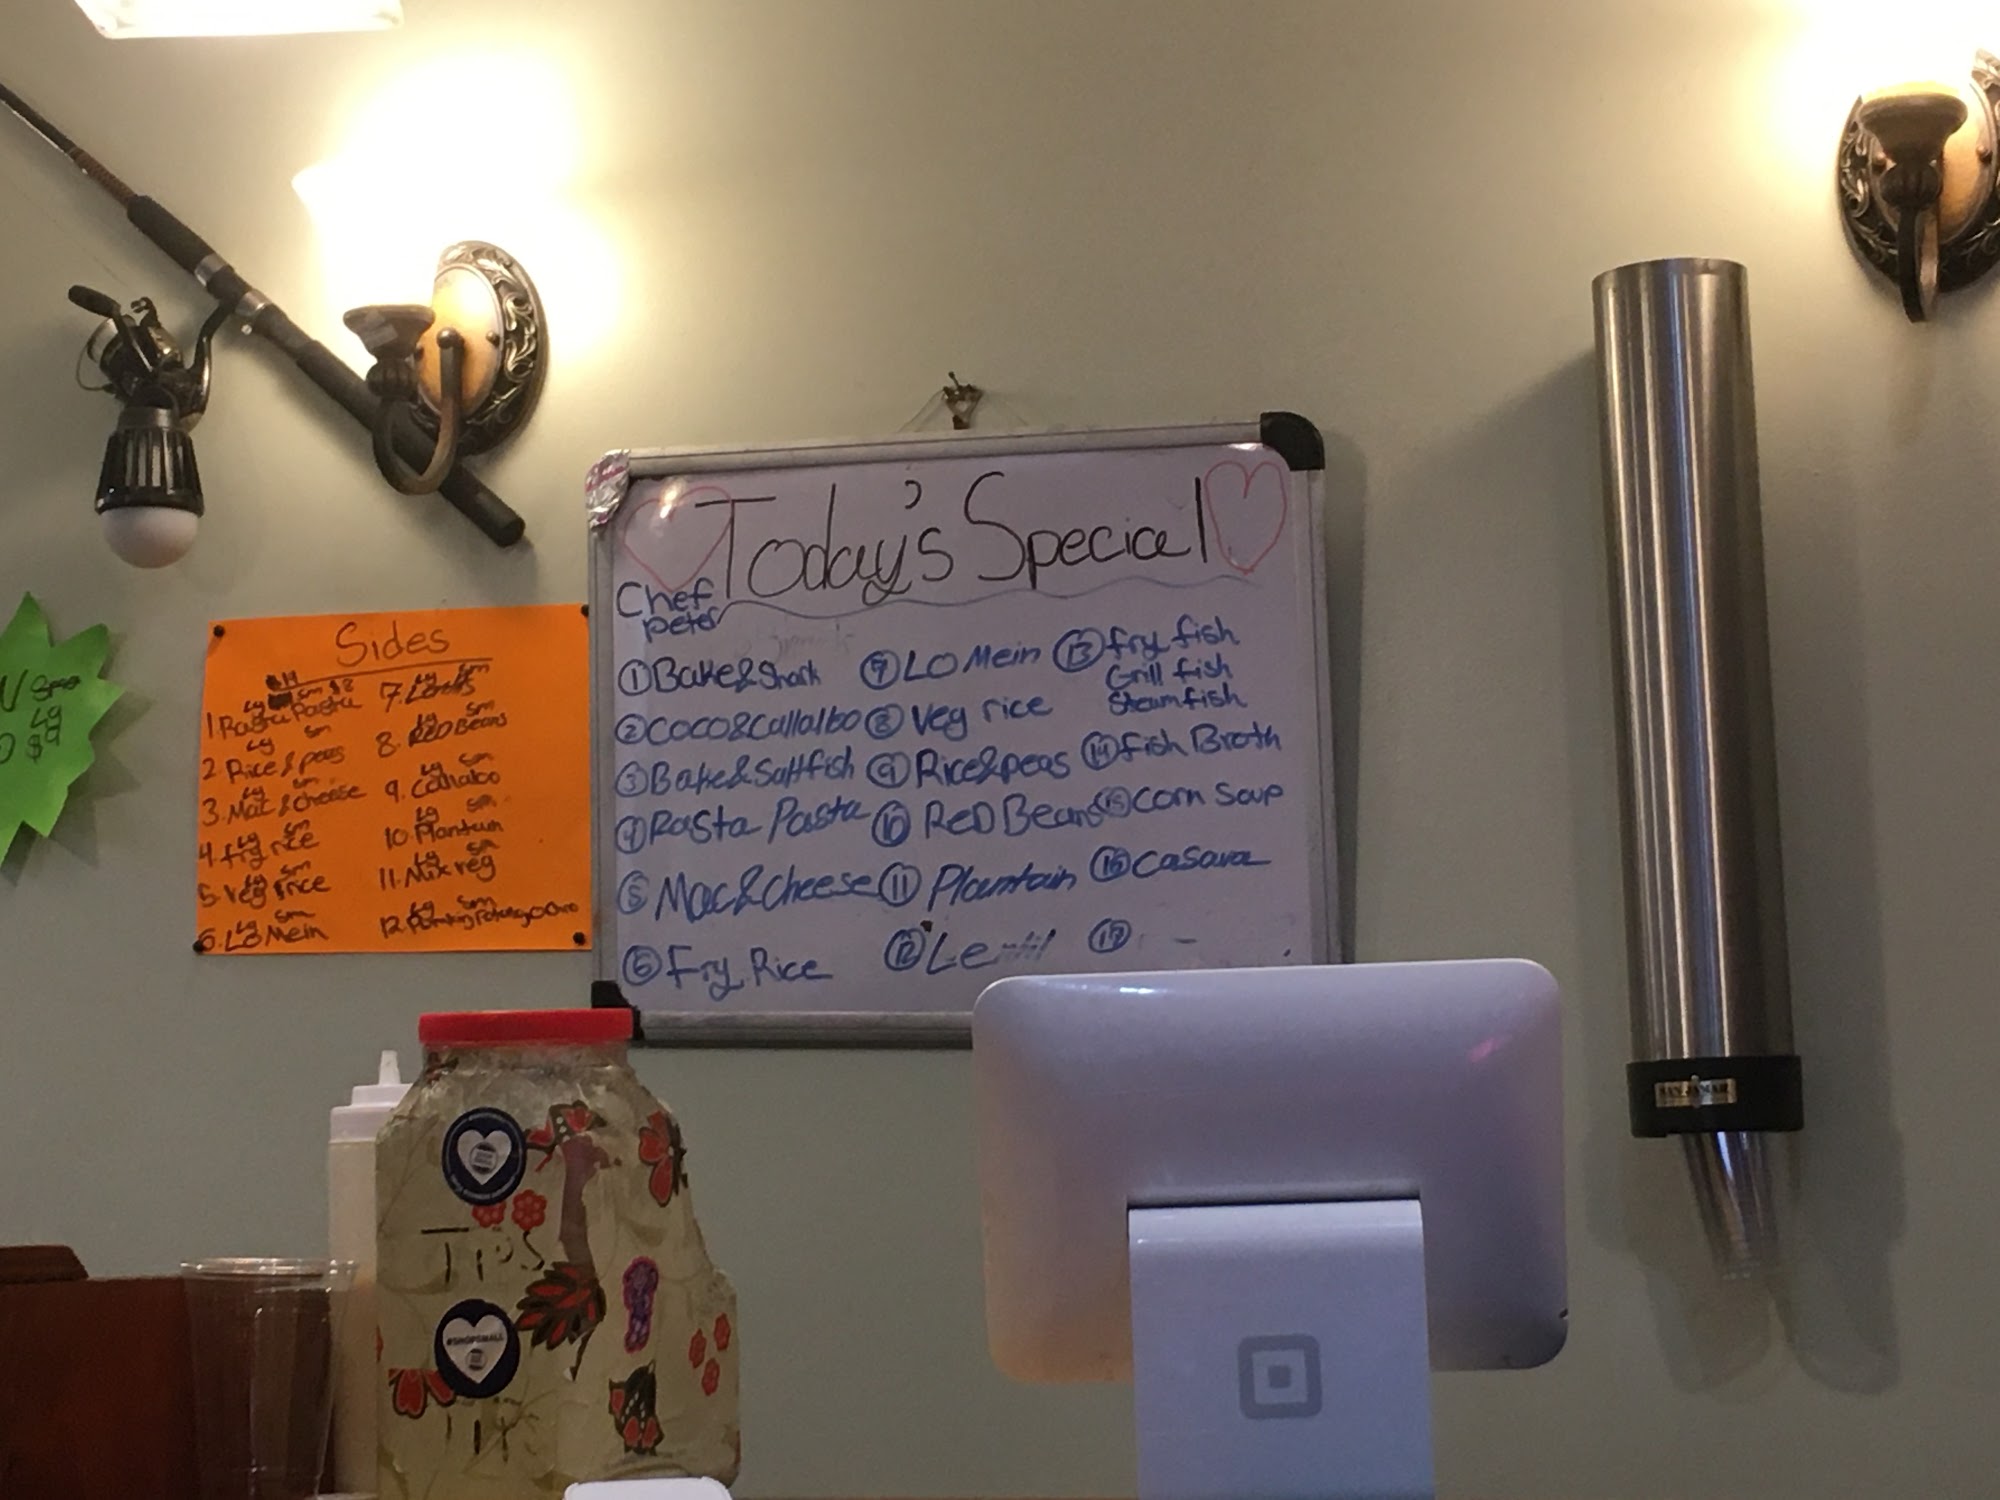 Today's Special
Chef
Peter
① Bake & Shark
② Coco & Callaloo
③ Bake & Saltfish
④ Rasta Pasta
⑤ Mac & Cheese
⑥ Fry Rice
⑦ LO Mein
⑧ Veg rice
⑨ Rice & peas
⑩ ReD Beans
⑪ Plantain
⑫ Lentil
⑬ fry fish
Grill fish
Steam fish
⑭ fish Broth
⑮ corn soup
⑯ casava
⑰
Sides
Lg sm $8
1 Rasta Pasta
Lg sm
2. Rice & peas
Lg sm
3. Mac & cheese
Lg sm
4. fry rice
Lg sm
5. Veg rice
Lg sm
6. LO Mein
Lg sm
7.
Lg sm
8. ReD Beans
Lg sm
9. Callaloo
Lg sm
10. Plantain
Lg sm
11. Mix veg
Lg sm
12.
Lg
$9
TIPS
#SHOPSMALL
SAN JAMAR